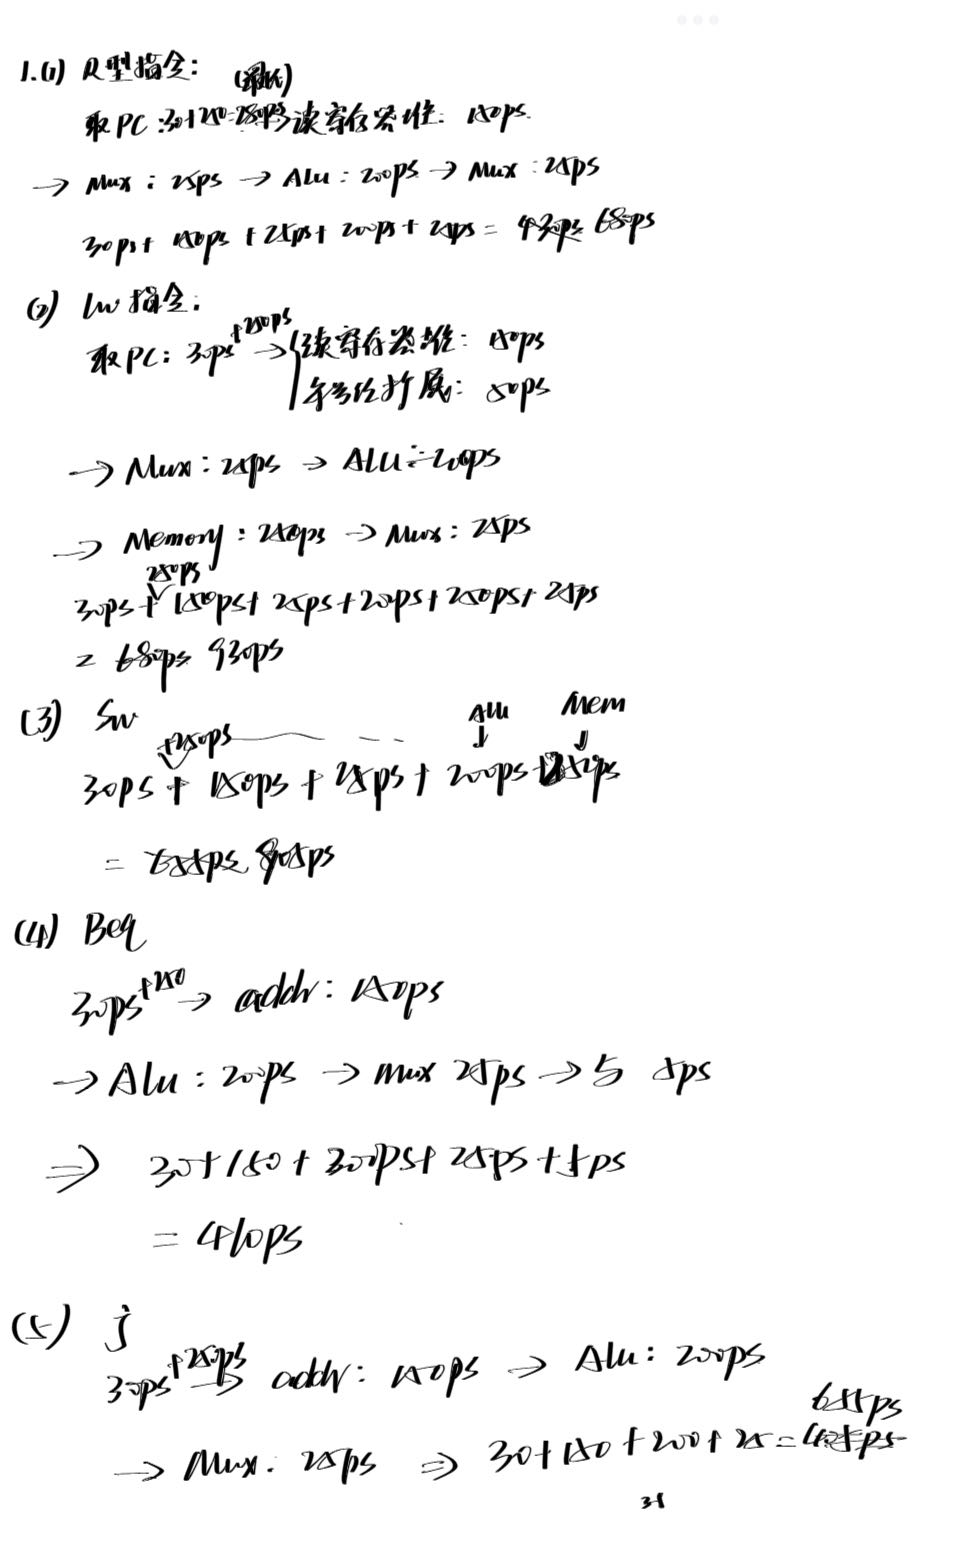 1.(1) R型指令:
(最长)
取PC:30+250=280ps 读寄存器堆: 150ps.
→ Mux: 25ps → Alu: 200ps → Mux: 25ps
30ps + 150ps + 25ps + 200ps + 25ps = 430ps 680ps
(2) lw 指令:
取PC: 30ps +250ps → { 读寄存器堆: 150ps
符号位扩展: 50ps
→ Mux: 25ps → ALU: 200ps
→ Memory: 250ps → Mux: 25ps
250ps
30ps + 150ps + 25ps + 200ps + 250ps + 25ps
= 680ps 930ps
(3) Sw
Alu Mem
+250ps
30ps + 150ps + 25ps + 200ps + 250ps
= 655ps 905ps
(4) Beq
30ps +250 → addr: 150ps
→ Alu: 200ps → mux 25ps → 与 5ps
⇒ 30+150+200ps+25ps+5ps
= 410ps
(5) j
30ps +250ps → addr: 150ps → Alu: 200ps
655ps
→ Mux: 25ps ⇒ 30+150+200+25=405ps